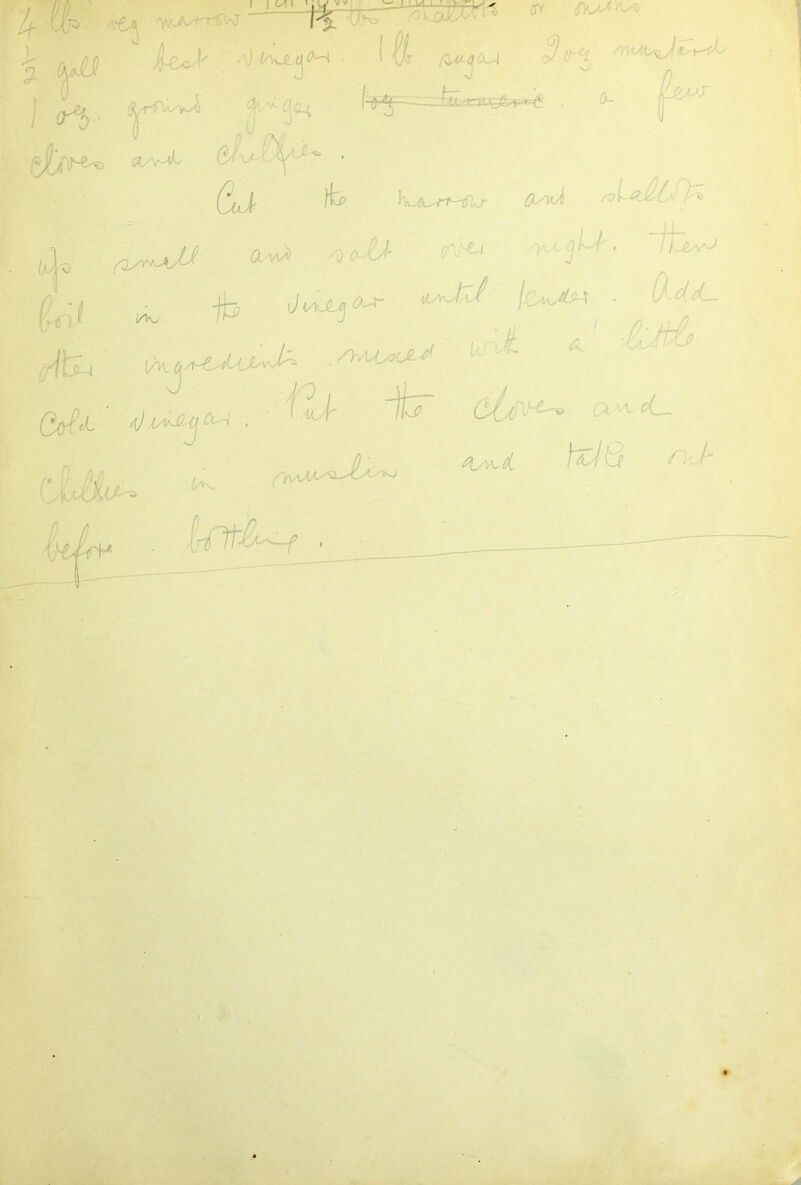 4 lbs veg marrow 1½ lbs shallots or onions
½ gall best vinegar. 1 lb. sugar 2 oz mustard
1 oz. ground ginger a few
cloves and chillies.
Cut the marrow and shallots
up small and salt over night. Then
boil in the vinegar until tender. Add
other ingredients mixed with a little
Cold vinegar. Put the cloves and
Chillies in muslin and take out
before bottling.